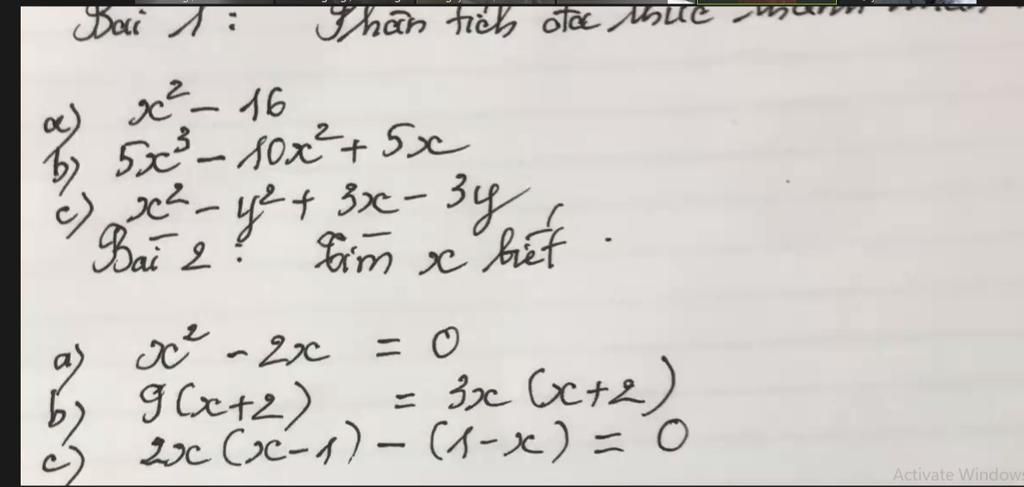 Bài 1 : Phân tích đa thức thành
a) x² - 16
b) 5x³ - 10x² + 5x
c) x² - y² + 3x - 3y
Bài 2 : Tìm x biết
a) x² - 2x = 0
b) 9(x+2) = 3x (x+2)
c) 2x (x-1) - (1-x) = 0
Activate Windows